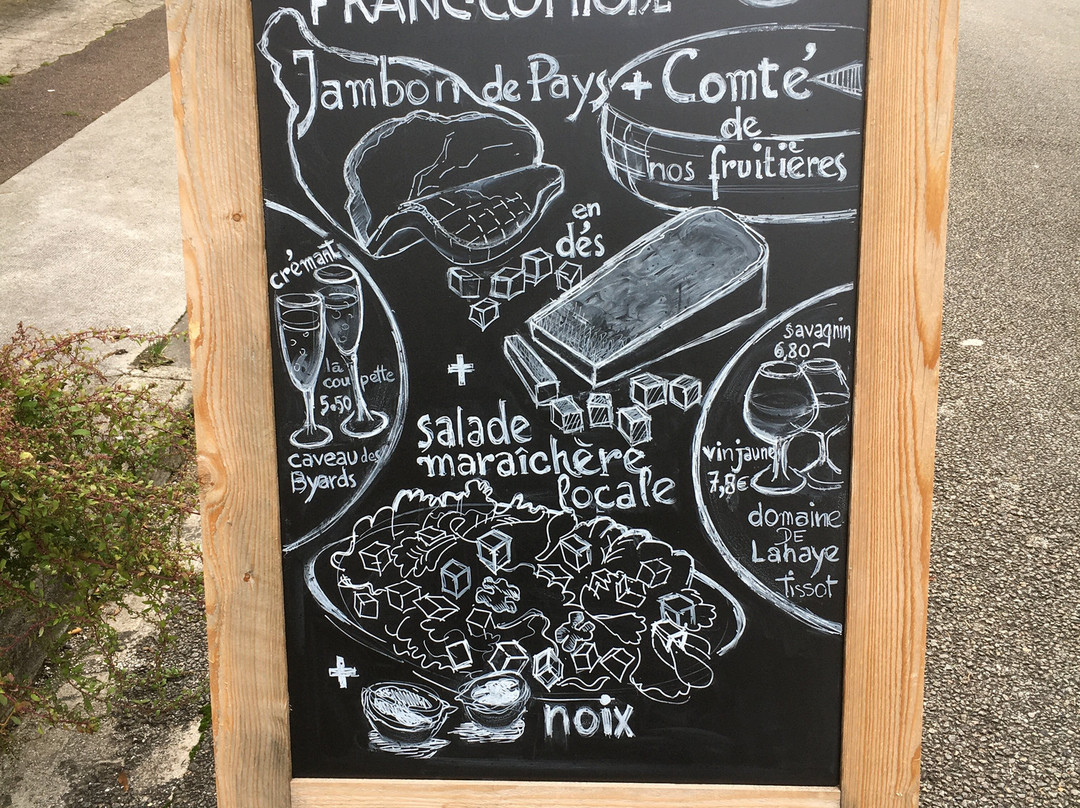 FRANC-COMTOISE
Jambon de Pays + Comté
de
nos fruitières
en
dés
crémant
la
coupette
5.50
caveau des
Byards
+
salade
maraîchère
locale
savagnin
6,80
vin jaune
7,8€
domaine
DE
Lahaye
Tissot
+
noix